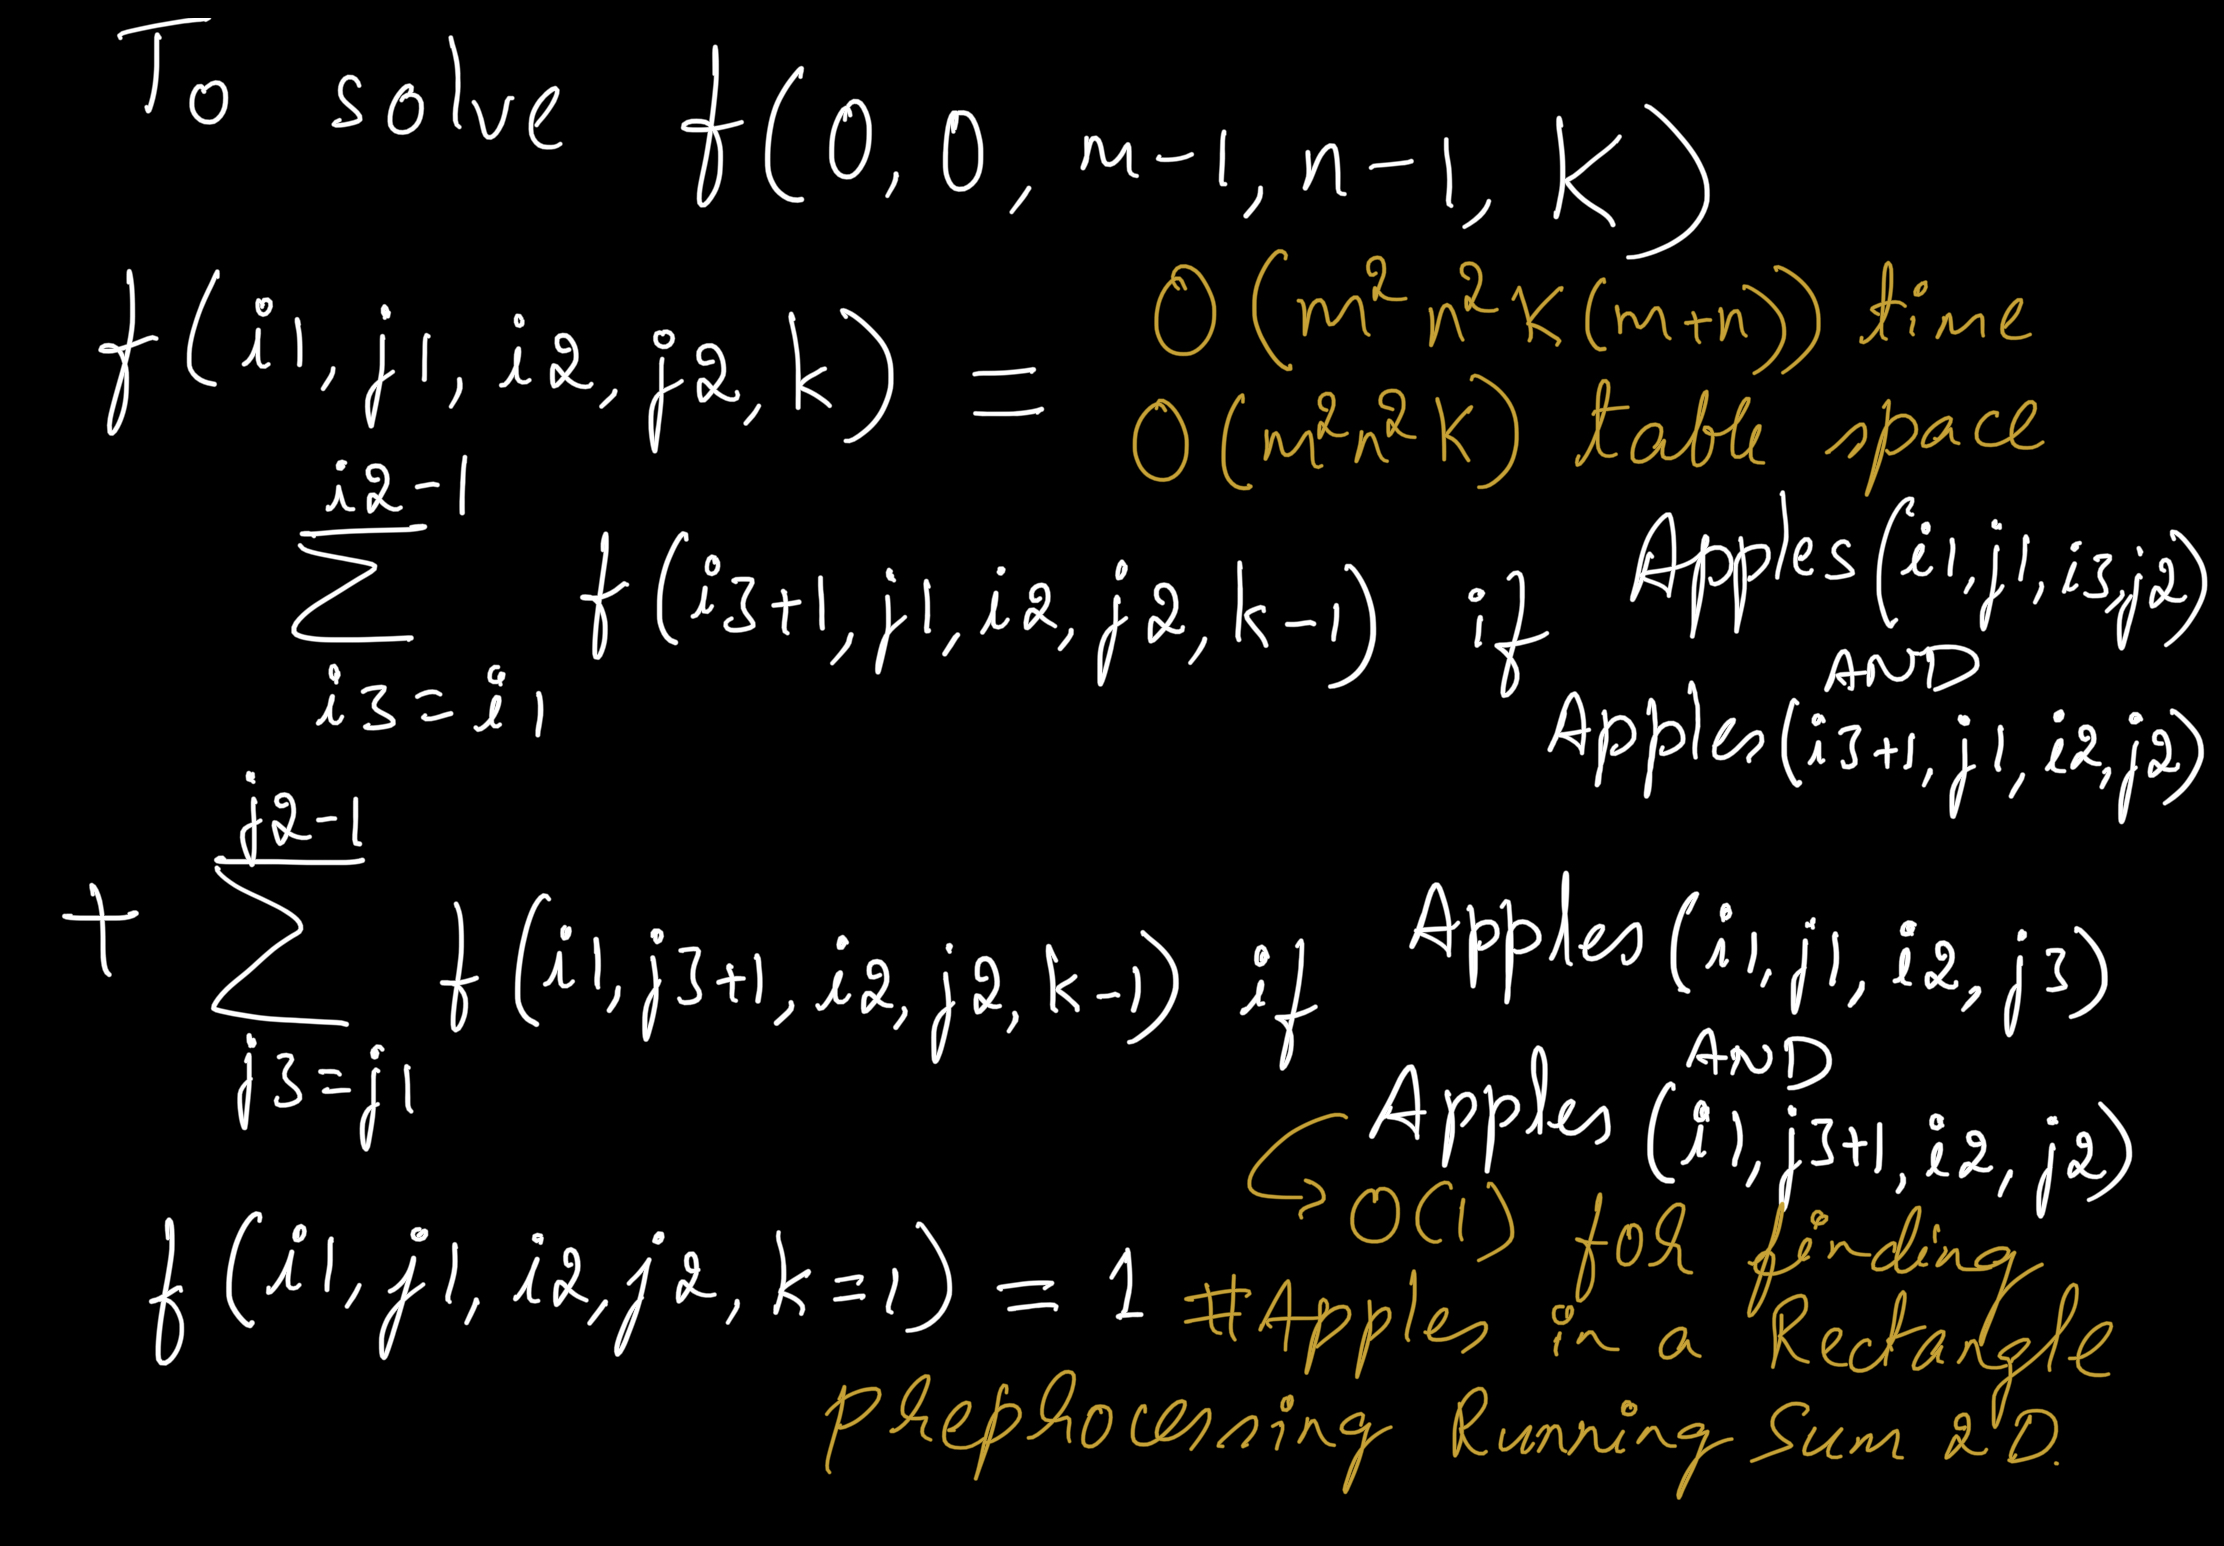 To solve f(0, 0, m-1, n-1, K)
f(i1, j1, i2, j2, k) =
O(m²n²K(m+n)) time
O(m²n²K) table space
i2-1
∑ f(i3+1, j1, i2, j2, k-1) if Apples(i1, j1, i3, j2)
i3=i1
AND
Apples(i3+1, j1, i2, j2)
j2-1
+ ∑ f(i1, j3+1, i2, j2, k-1) if Apples(i1, j1, i2, j3)
j3=j1
AND
Apples(i1, j3+1, i2, j2)
→ O(1) for finding
f(i1, j1, i2, j2, k=1) = 1
#Apples in a Rectangle
preprocessing Running Sum 2D.